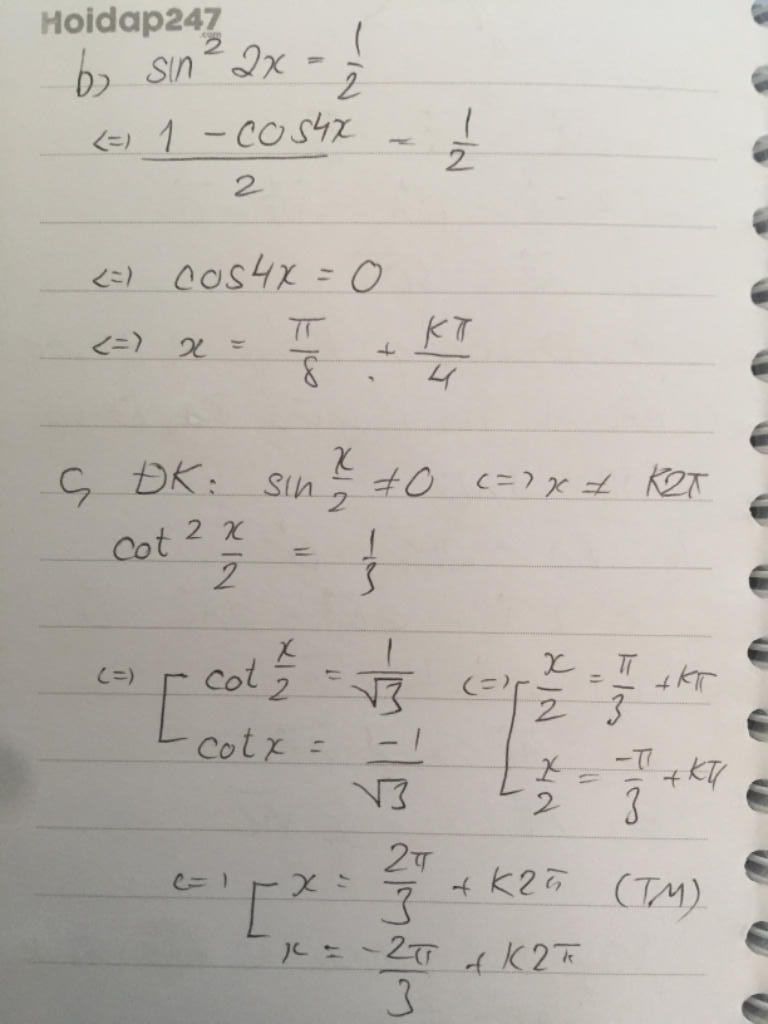 Hoidap247
.com
b) sin² 2x = 1/2
<=> (1 - cos4x)/2 = 1/2
<=> cos4x = 0
<=> x = π/8 + kπ/4
c, ĐK: sin x/2 ≠ 0 <=> x ≠ k2π
cot² x/2 = 1/3
<=> [ cot x/2 = 1/√3 <=> [ x/2 = π/3 + kπ
cot x = -1/√3 x/2 = -π/3 + kπ
<=> [ x = 2π/3 + k2π (TM)
x = -2π/3 + k2π